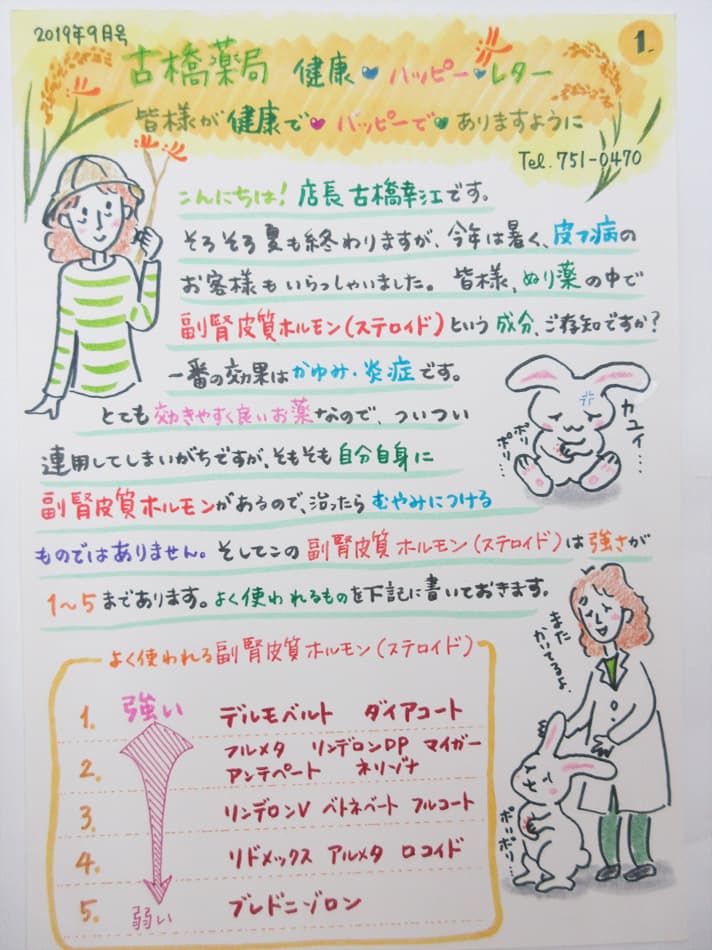 2019年9月号
1.
古橋薬局 健康 ハッピー レター
皆様が健康で ハッピーで ありますように
Tel.751-0470
こんにちは! 店長 古橋幸江です。
そろそろ夏も終わりますが、今年は暑く、皮フ病の
お客様もいらっしゃいました。 皆様、ぬり薬の中で
副腎皮質ホルモン(ステロイド)という成分、ご存知ですか?
一番の効果はかゆみ・炎症です。
とても効きやすく良いお薬なので、ついつい
連用してしまいがちですが、そもそも自分自身に
副腎皮質ホルモンがあるので、治ったらむやみにつける
ものではありません。そしてこの副腎皮質ホルモン(ステロイド)は強さが
1~5まであります。よく使われるものを下記に書いておきます。
カユイ…
ポリ
ポリ…
また
かいてるよ。
ポリポリ…
よく使われる副腎皮質ホルモン(ステロイド)
1. 強い デルモベルト ダイアコート
2. フルメタ リンデロンDP マイガー
アンテベート ネリゾナ
3. リンデロンV ベトネベート フルコート
4. リドメックス アルメタ ロコイド
5. 弱い プレドニゾロン